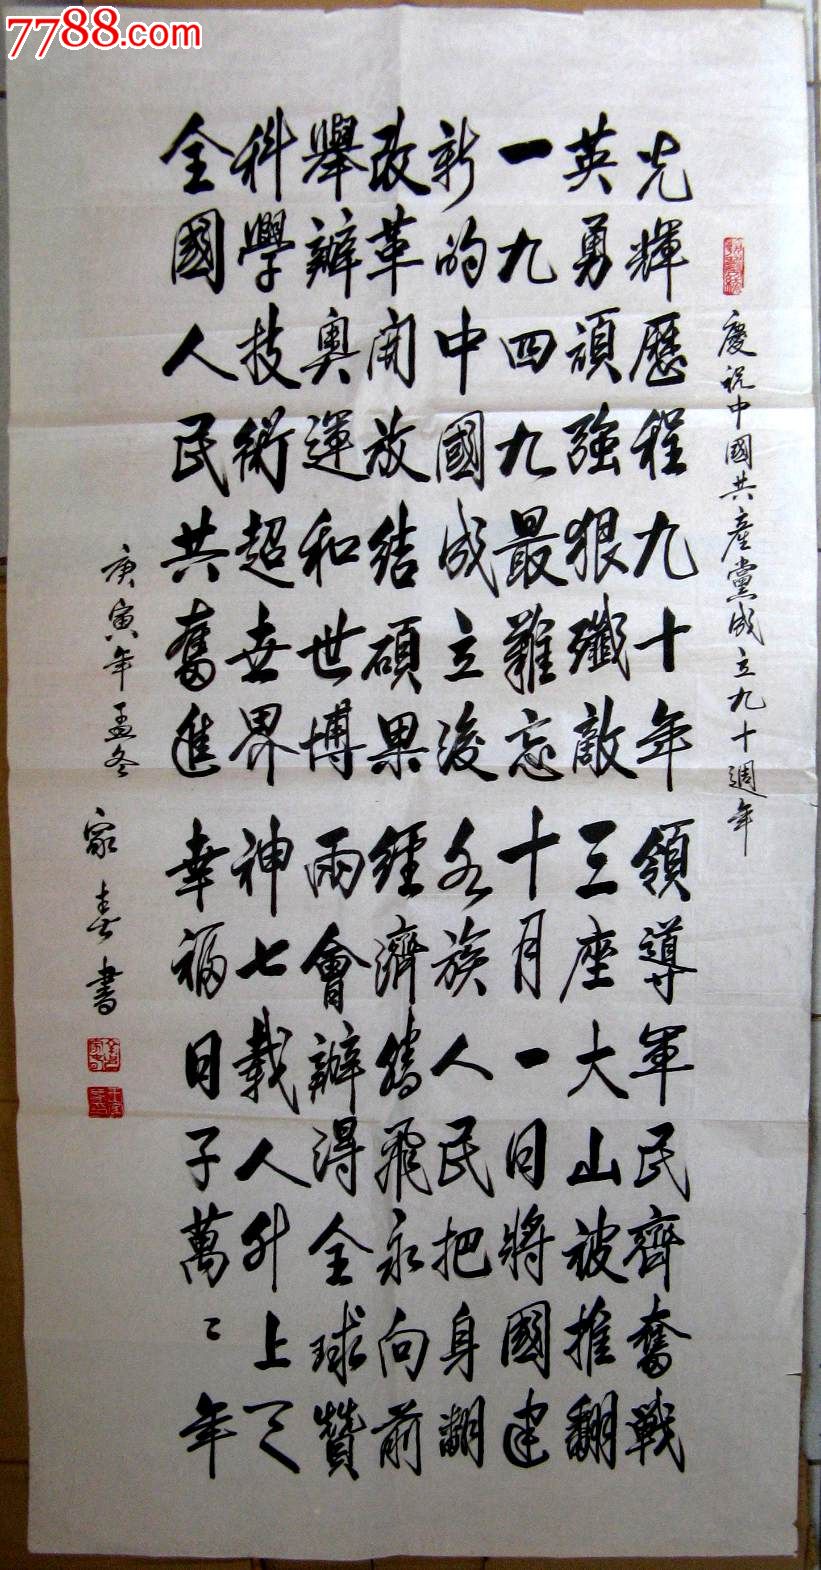 7788.com
慶祝中國共產黨成立九十週年
光輝歷程九十年領導軍民齊奮戰
英勇頑強狠殲敵三座大山被推翻
一九四九最難忘十月一日將國建
新的中國成立後各族人民把身翻
改革開放結碩果經濟騰飛永向前
舉辦奧運和世博兩會辦得全球贊
科學技術超世界神七載人升上天
全國人民共奮進幸福日子萬萬年
庚寅年孟冬
家春書